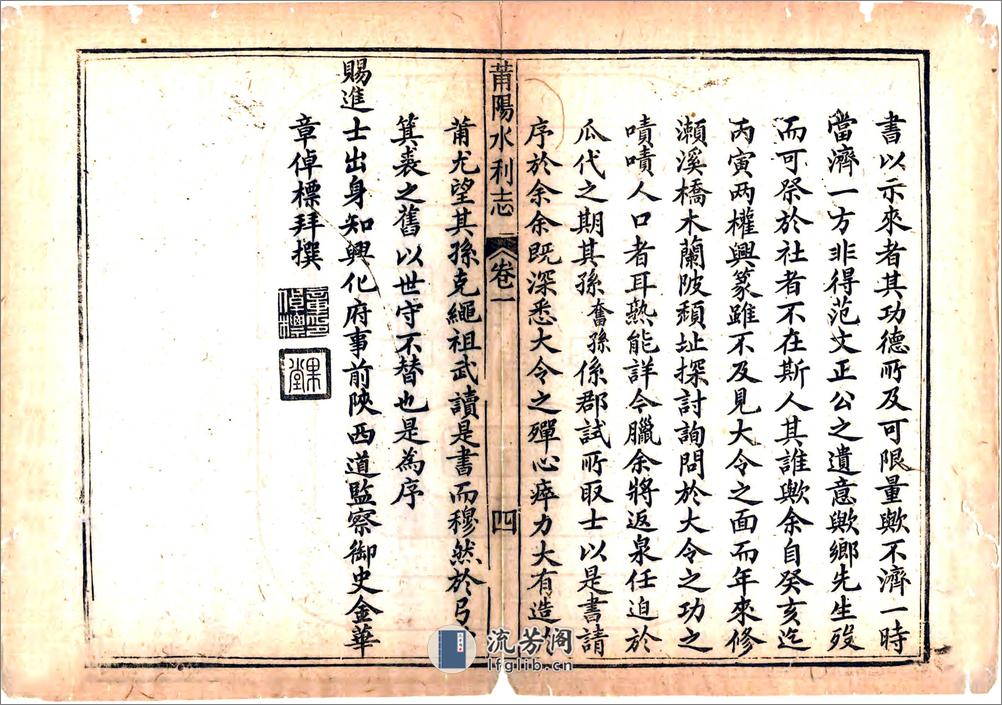 書以示來者其功德所及可限量歟不濟一時
當濟一方非得范文正公之遺意歟鄉先生歿
而可祭於社者不在斯人其誰歟余自癸亥迄
丙寅两權興篆雖不及見大令之面而年來修
瀨溪橋木蘭陂頹址探討詢問於大令之功之
嘖嘖人口者耳熟能詳今臘余將返泉任迫於
瓜代之期其孫奮孫係郡試所取士以是書請
序於余余既深悉大令之殫心瘁力大有造
莆陽水利志
卷一
四
莆尤望其孫克繩祖武讀是書而穆然於弓
箕裘之舊以世守不替也是為序
賜進士出身知興化府事前陝西道監察御史金華
章倬標拜撰
章印倬標
果堂
流芳阁
lfglib.cn